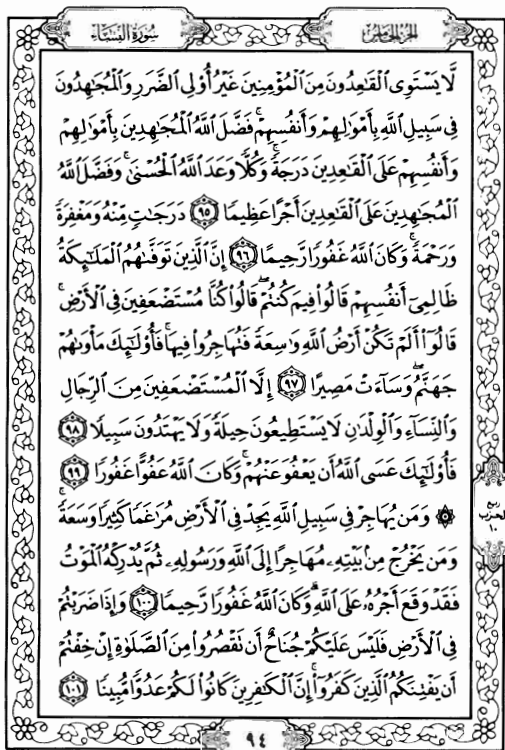 سُورَةُ النِّسَاءِ
الجُزْءُ الخَامِسُ
لَّا يَسْتَوِى ٱلْقَـٰعِدُونَ مِنَ ٱلْمُؤْمِنِينَ غَيْرُ أُو۟لِى ٱلضَّرَرِ وَٱلْمُجَـٰهِدُونَ
فِى سَبِيلِ ٱللَّهِ بِأَمْوَٰلِهِمْ وَأَنفُسِهِمْ ۚ فَضَّلَ ٱللَّهُ ٱلْمُجَـٰهِدِينَ بِأَمْوَٰلِهِمْ
وَأَنفُسِهِمْ عَلَى ٱلْقَـٰعِدِينَ دَرَجَةً ۚ وَكُلًّا وَعَدَ ٱللَّهُ ٱلْحُسْنَىٰ ۚ وَفَضَّلَ ٱللَّهُ
ٱلْمُجَـٰهِدِينَ عَلَى ٱلْقَـٰعِدِينَ أَجْرًا عَظِيمًا ٩٥ دَرَجَـٰتٍ مِّنْهُ وَمَغْفِرَةً
وَرَحْمَةً ۚ وَكَانَ ٱللَّهُ غَفُورًا رَّحِيمًا ٩٦ إِنَّ ٱلَّذِينَ تَوَفَّىٰهُمُ ٱلْمَلَـٰٓئِكَةُ
ظَالِمِىٓ أَنفُسِهِمْ قَالُوا۟ فِيمَ كُنتُمْ ۖ قَالُوا۟ كُنَّا مُسْتَضْعَفِينَ فِى ٱلْأَرْضِ ۚ
قَالُوٓا۟ أَلَمْ تَكُنْ أَرْضُ ٱللَّهِ وَٰسِعَةً فَتُهَاجِرُوا۟ فِيهَا ۚ فَأُو۟لَـٰٓئِكَ مَأْوَىٰهُمْ
جَهَنَّمُ ۖ وَسَآءَتْ مَصِيرًا ٩٧ إِلَّا ٱلْمُسْتَضْعَفِينَ مِنَ ٱلرِّجَالِ
وَٱلنِّسَآءِ وَٱلْوِلْدَٰنِ لَا يَسْتَطِيعُونَ حِيلَةً وَلَا يَهْتَدُونَ سَبِيلًا ٩٨
فَأُو۟لَـٰٓئِكَ عَسَى ٱللَّهُ أَن يَعْفُوَ عَنْهُمْ ۚ وَكَانَ ٱللَّهُ عَفُوًّا غَفُورًا ٩٩
۞ وَمَن يُهَاجِرْ فِى سَبِيلِ ٱللَّهِ يَجِدْ فِى ٱلْأَرْضِ مُرَٰغَمًا كَثِيرًا وَسَعَةً ۚ
وَمَن يَخْرُجْ مِنۢ بَيْتِهِۦ مُهَاجِرًا إِلَى ٱللَّهِ وَرَسُولِهِۦ ثُمَّ يُدْرِكْهُ ٱلْمَوْتُ
فَقَدْ وَقَعَ أَجْرُهُۥ عَلَى ٱللَّهِ ۗ وَكَانَ ٱللَّهُ غَفُورًا رَّحِيمًا ١٠٠ وَإِذَا ضَرَبْتُمْ
فِى ٱلْأَرْضِ فَلَيْسَ عَلَيْكُمْ جُنَاحٌ أَن تَقْصُرُوا۟ مِنَ ٱلصَّلَوٰةِ إِنْ خِفْتُمْ
أَن يَفْتِنَكُمُ ٱلَّذِينَ كَفَرُوٓا۟ ۚ إِنَّ ٱلْكَـٰفِرِينَ كَانُوا۟ لَكُمْ عَدُوًّا مُّبِينًا ١٠١
ربع
الحزب
١٠
٩٤